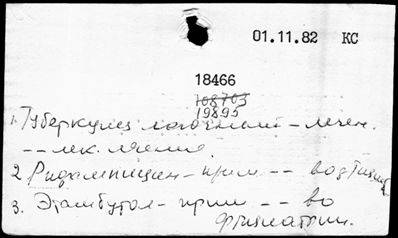 01.11.82 КС
18466
108703
19895
1. Туберкулез легочный - лечен.
-- лек. лечение
2. Рифампицин - прим -- во фтизиатр
3. Этамбутол - прим -- во
фтизиатрии.